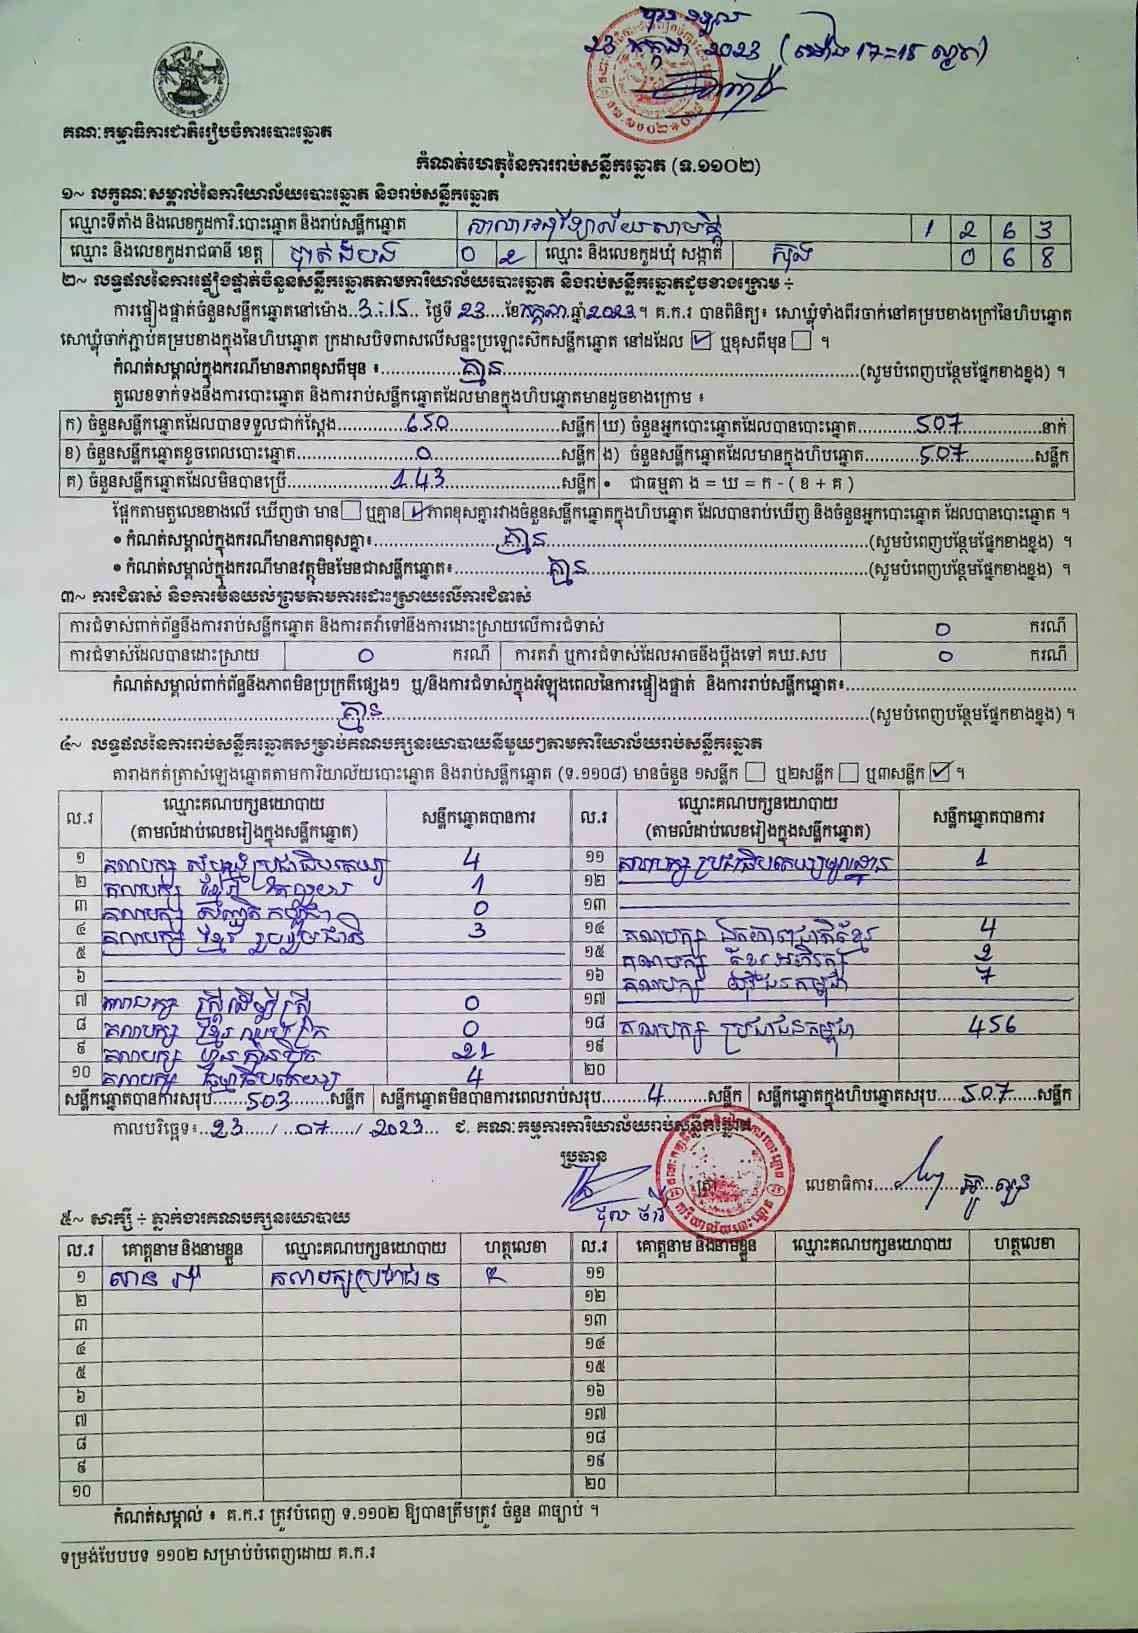 បានទទួល
23 កក្កដា 2023 (ម៉ោង 17=15 ល្ងាច)
គណៈកម្មាធិការជាតិរៀបចំការបោះឆ្នោត
កំណត់ហេតុនៃការរាប់សន្លឹកឆ្នោត (ទ.១១០២)
១~ លក្ខណៈសម្គាល់នៃការិយាល័យបោះឆ្នោត និងរាប់សន្លឹកឆ្នោត
ឈ្មោះទីតាំង និងលេខកូដការិ.បោះឆ្នោត និងរាប់សន្លឹកឆ្នោត សាលាអនុវិទ្យាល័យសាមគ្គី 1 2 6 3
ឈ្មោះ និងលេខកូដរាជធានី ខេត្ត បាត់ដំបង 0 2 ឈ្មោះ និងលេខកូដឃុំ សង្កាត់ ស្នឹង 0 6 8
២~ លទ្ធផលនៃការផ្ទៀងផ្ទាត់ចំនួនសន្លឹកឆ្នោតតាមការិយាល័យបោះឆ្នោត និងរាប់សន្លឹកឆ្នោតដូចខាងក្រោម ÷
ការផ្ទៀងផ្ទាត់ចំនួនសន្លឹកឆ្នោតនៅម៉ោង..3:15.. ថ្ងៃទី 23....ខែកក្កដា.ឆ្នាំ2023។ គ.ក.រ បានពិនិត្យ៖ សោឃ្លុំទាំងពីរចាក់នៅគម្របខាងក្រៅនៃហិបឆ្នោត
សោឃ្លុំចាក់ភ្ជាប់គម្របខាងក្នុងនៃហិបឆ្នោត ក្រដាសបិទពាសលើសន្ទះប្រឡោះស៊កសន្លឹកឆ្នោត នៅដដែល ☑ ឬខុសពីមុន ☐ ។
កំណត់សម្គាល់ក្នុងករណីមានភាពខុសពីមុន ៖............គ្មាន............(សូមបំពេញបន្ថែមផ្នែកខាងខ្នង) ។
តួលេខទាក់ទងនឹងការបោះឆ្នោត និងការរាប់សន្លឹកឆ្នោតដែលមានក្នុងហិបឆ្នោតមានដូចខាងក្រោម ៖
ក) ចំនួនសន្លឹកឆ្នោតដែលបានទទួលជាក់ស្តែង............650............សន្លឹក ឃ) ចំនួនអ្នកបោះឆ្នោតដែលបានបោះឆ្នោត..........507..........នាក់
ខ) ចំនួនសន្លឹកឆ្នោតខូចពេលបោះឆ្នោត............0............សន្លឹក ង) ចំនួនសន្លឹកឆ្នោតដែលមានក្នុងហិបឆ្នោត..........507..........សន្លឹក
គ) ចំនួនសន្លឹកឆ្នោតដែលមិនបានប្រើ............143............សន្លឹក • ជាធម្មតា ង = ឃ = ក - ( ខ + គ )
ផ្អែកតាមតួលេខខាងលើ ឃើញថា មាន ☐ ឬគ្មាន ☑ ភាពខុសគ្នារវាងចំនួនសន្លឹកឆ្នោតក្នុងហិបឆ្នោត ដែលបានរាប់ឃើញ និងចំនួនអ្នកបោះឆ្នោត ដែលបានបោះឆ្នោត ។
• កំណត់សម្គាល់ក្នុងករណីមានភាពខុសគ្នា៖............គ្មាន............(សូមបំពេញបន្ថែមផ្នែកខាងខ្នង) ។
• កំណត់សម្គាល់ក្នុងករណីមានវត្ថុមិនមែនជាសន្លឹកឆ្នោត៖............គ្មាន............(សូមបំពេញបន្ថែមផ្នែកខាងខ្នង) ។
៣~ ការជំទាស់ និងការមិនយល់ព្រមតាមការដោះស្រាយលើការជំទាស់
ការជំទាស់ពាក់ព័ន្ធនឹងការរាប់សន្លឹកឆ្នោត និងការតវ៉ាទៅនឹងការដោះស្រាយលើការជំទាស់ 0 ករណី
ការជំទាស់ដែលបានដោះស្រាយ 0 ករណី ការតវ៉ា ឬការជំទាស់ដែលអាចនឹងប្តឹងទៅ គឃ.សប 0 ករណី
កំណត់សម្គាល់ពាក់ព័ន្ធនឹងភាពមិនប្រក្រតីផ្សេងៗ ឬ/និងការជំទាស់ក្នុងអំឡុងពេលនៃការផ្ទៀងផ្ទាត់ និងការរាប់សន្លឹកឆ្នោត៖............
............គ្មាន............(សូមបំពេញបន្ថែមផ្នែកខាងខ្នង) ។
៤~ លទ្ធផលនៃការរាប់សន្លឹកឆ្នោតសម្រាប់គណបក្សនយោបាយនីមួយៗតាមការិយាល័យរាប់សន្លឹកឆ្នោត
តារាងកត់ត្រាសំឡេងឆ្នោតតាមការិយាល័យបោះឆ្នោត និងរាប់សន្លឹកឆ្នោត (ទ.១១០៨) មានចំនួន ១សន្លឹក ☐ ឬ២សន្លឹក ☐ ឬ៣សន្លឹក ☑ ។
ល.រ ឈ្មោះគណបក្សនយោបាយ (តាមលំដាប់លេខរៀងក្នុងសន្លឹកឆ្នោត) សន្លឹកឆ្នោតបានការ ល.រ ឈ្មោះគណបក្សនយោបាយ (តាមលំដាប់លេខរៀងក្នុងសន្លឹកឆ្នោត) សន្លឹកឆ្នោតបានការ
១ គណបក្ស សំបុកឃ្មុំប្រជាធិបតេយ្យ 4 ១១ គណបក្ស ប្រជាធិបតេយ្យមូលដ្ឋាន 1
២ គណបក្ស ខ្មែរ 1 ១២
៣ គណបក្ស កម្ពុជា 0 ១៣
៤ គណបក្ស ខ្មែរ រួបរួមជាតិ 3 ១៤ គណបក្ស ឯកភាពជាតិខ្មែរ 4
៥ ១៥ គណបក្ស ខ្មែរអភិរក្ស 2
៦ ១៦ គណបក្ស យុវជនកម្ពុជា 7
៧ គណបក្ស ស្ត្រីដើម្បីស្ត្រី 0 ១៧
៨ គណបក្ស ខ្មែរ ឈប់ក្រ 0 ១៨ គណបក្ស ប្រជាជនកម្ពុជា 456
៩ គណបក្ស ហ៊្វុនស៊ិនប៉ិច 21 ១៩
១០ គណបក្ស ធម្មាធិបតេយ្យ 4 ២០
សន្លឹកឆ្នោតបានការសរុប......503......សន្លឹក សន្លឹកឆ្នោតមិនបានការពេលរាប់សរុប......4......សន្លឹក សន្លឹកឆ្នោតក្នុងហិបឆ្នោតសរុប......507......សន្លឹក
កាលបរិច្ឆេទ៖..23..../..07..../ 2023... ជ. គណៈកម្មការការិយាល័យរាប់សន្លឹកឆ្នោត
ប្រធាន
លេខាធិការ
៥~ សាក្សី ÷ ភ្នាក់ងារគណបក្សនយោបាយ
ល.រ គោត្តនាម និងនាមខ្លួន ឈ្មោះគណបក្សនយោបាយ ហត្ថលេខា ល.រ គោត្តនាម និងនាមខ្លួន ឈ្មោះគណបក្សនយោបាយ ហត្ថលេខា
១ សាន គណបក្សប្រជាជន ១១
២ ១២
៣ ១៣
៤ ១៤
៥ ១៥
៦ ១៦
៧ ១៧
៨ ១៨
៩ ១៩
១០ ២០
កំណត់សម្គាល់ ៖ គ.ក.រ ត្រូវបំពេញ ទ.១១០២ ឱ្យបានត្រឹមត្រូវ ចំនួន ៣ច្បាប់ ។
ទម្រង់បែបបទ ១១០២ សម្រាប់បំពេញដោយ គ.ក.រ